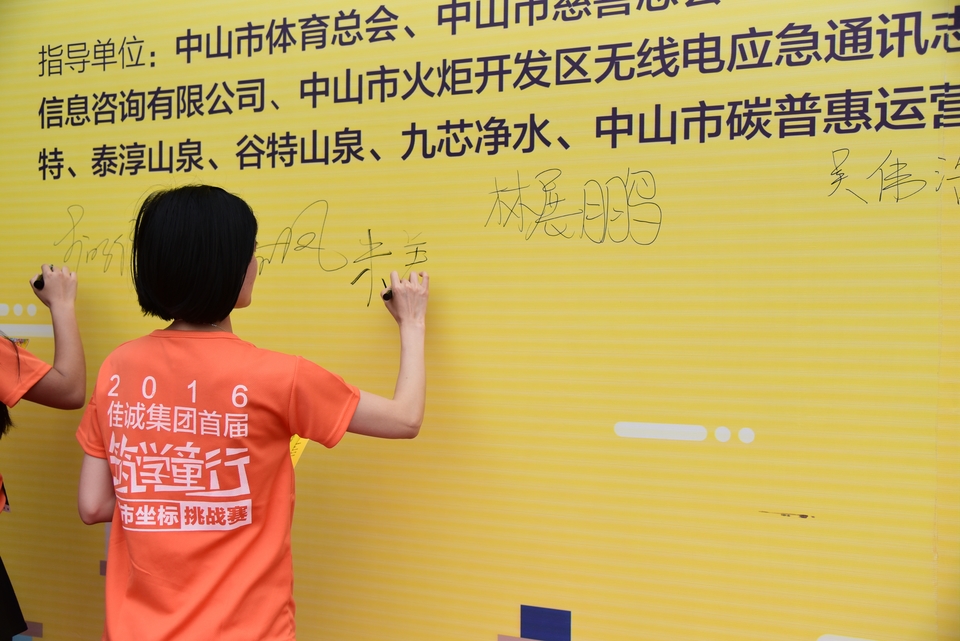 指导单位：中山市体育总会、中山市慈善总会
信息咨询有限公司、中山市火炬开发区无线电应急通讯志
特、泰淳山泉、谷特山泉、九芯净水、中山市碳普惠运营
林展鹏
吴伟浩
2016
佳诚集团首届
筑学童行
市坐标 挑战赛